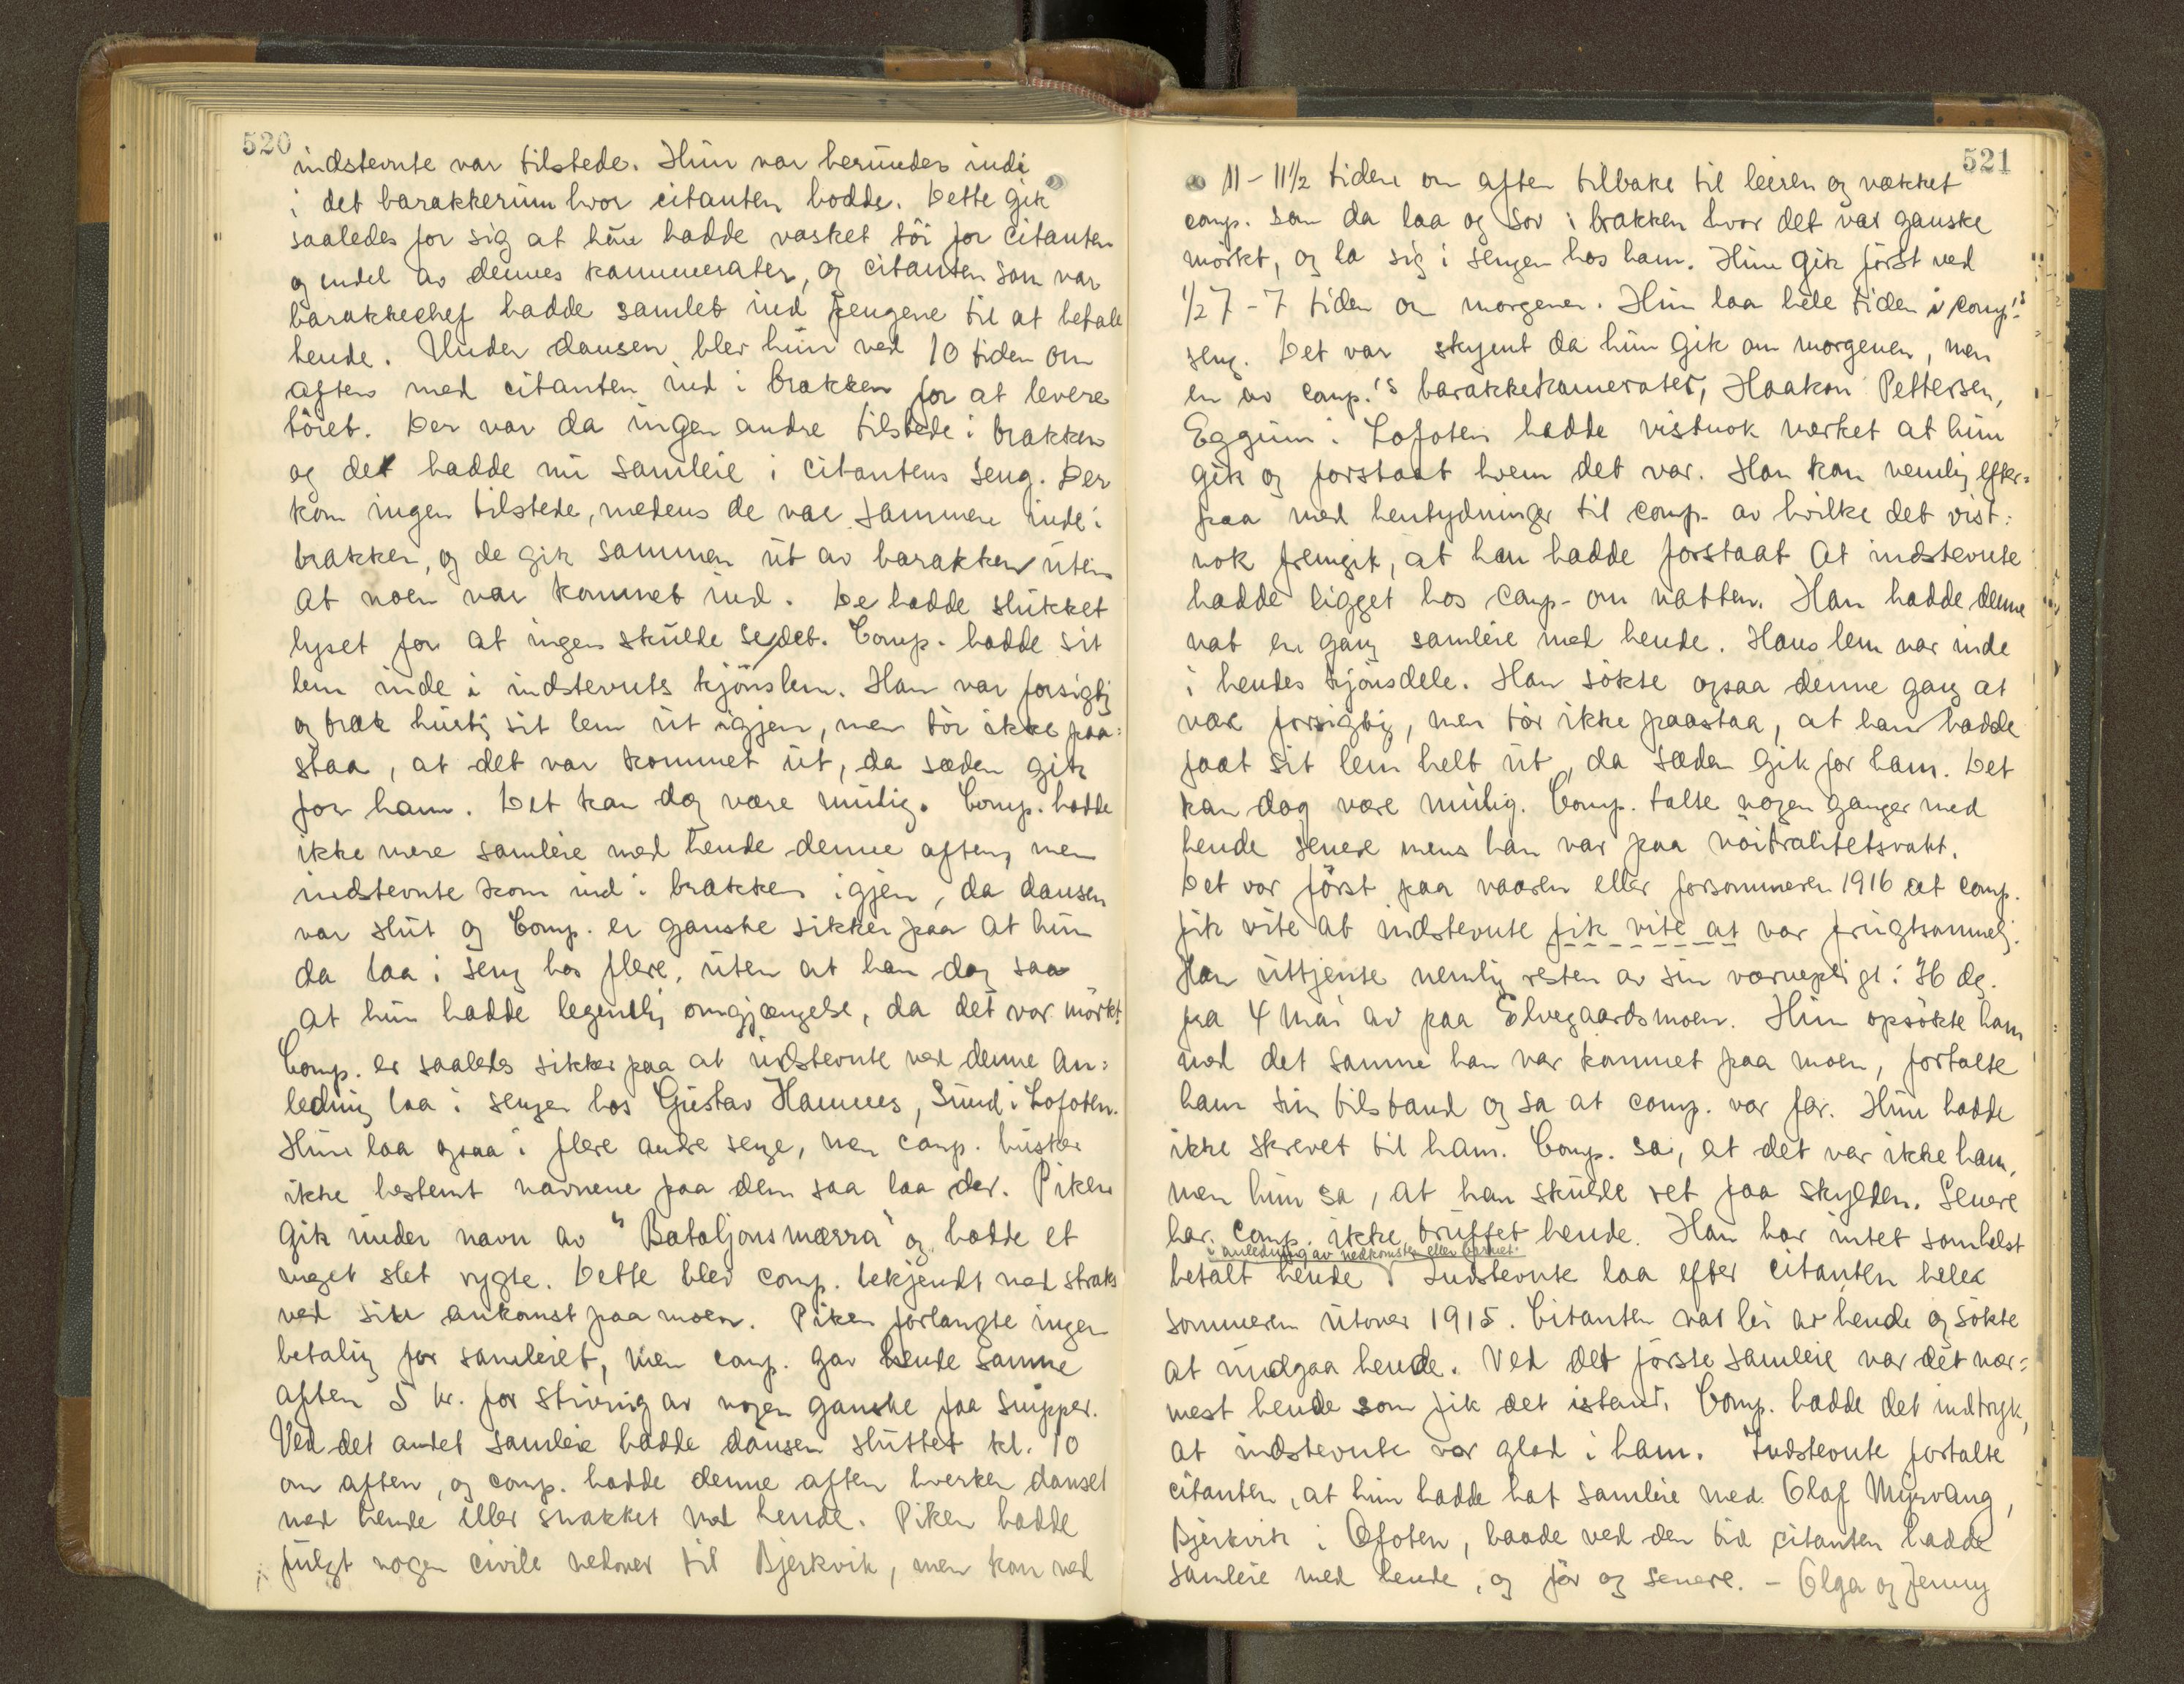 520
indstevnte var tilstede. Hun var herunder inde
i det barakkerum hvor citanten bodde. Dette gik
saaledes for sig at hun hadde vasket töi for citanten
og endel av dennes kammerater, og citanten som var
barakkechef hadde samlet ind pengene til at betale
hende. Under dansen blev hun ved 10 tiden om
aften med citanten ind i brakken for at levere
töiet. Der var da ingen andre tilstede i brakken
og det hadde nu samleie i citantens seng. Der
kom ingen tilstede, medens de var sammen inde i
brakken, og de gik sammen ut av barakken uten
at noen var kommet ind. De hadde slukket
lyset for at ingen skulde se det. Comp. hadde sit
lem inde i indstevnts kjönslem. Han var forsigtig
og trak hurtig sit lem ut igjen, men tör ikke paa=
staa, at det var kommet ut, da sæden gik
for ham. Det kan dog være mulig. Comp. hadde
ikke mere samleie med hende denne aften, men
indstevnte kom ind i brakken igjen, da dansen
var slut og Comp. er ganske sikker paa at hun
da laa i seng hos flere, uten at han dog saa
at hun hadde legemlig omgjængelse, da det var mörkt.
Comp. er saaledes sikker paa at indstevnte ved denne an=
ledning laa i sengen hos Gustav Hannes, Sund i Lofoten.
Hun laa ogsaa i flere andre senge, men comp. husker
ikke bestemt navnene paa dem saa laa der. Piken
gik under navn av "Bataljonsmærra" og hadde et
meget slet rygte. Dette blev comp. bekjendt med straks
ved sin ankomst paa moen. Piken forlangte ingen
betaling for samleiet, men comp. gav hende samme
aften 5 kr. for stivning av nogen ganske faa snipper.
Ved det andet samleie hadde dansen sluttet kl. 10
om aften, og comp. hadde denne aften hverken danset
med hende eller snakket med hende. Piken hadde
fulgt nogen civile nedover til Bjerkvik, men kom ved
521
11 - 11½ tiden om aften tilbake til leiren og vækket
comp. som da laa og sov i brakken hvor det var ganske
mörkt, og la sig i sengen hos ham. Hun gik först ved
½ 7 - 7 tiden om morgenen. Hun laa hele tiden i comp's
seng. Det var skyemt da hun gik om morgenen, men
en av comp.'s barakkekamerater, Haakon Pettersen,
Eggum i Lofoten hadde vistnok merket at hun
gik og forstaat hvem det var. Han kom nemlig efter=
paa med hentydninger til comp. av hvilke det vist=
nok fremgik, at han hadde forstaat at indstevnte
hadde ligget hos comp. om natten. Han hadde denne
nat en gang samleie med hende. Hans lem var inde
i hendes kjönsdele. Han sökte ogsaa denne gang at
være forsigtig, men tör ikke paastaa, at han hadde
faat sit lem helt ut, da sæden gik for ham. Det
kan dog være mulig. Comp. talte nogen ganger med
hende senere mens han var paa nöitralitetsvakt.
Det var först paa vaaren eller forsommeren 1916 at comp.
fik vite at indstevnte fik vite at var frugtsommelig.
Han uttjente nemlig resten av sin værnepligt: 36 dg.
fra 4 mai av paa Elvegaardsmoen. Hun opsökte ham
med det samme han var kommet paa moen, fortalte
ham sin tilstand og sa at comp. var far. Hun hadde
ikke skrevet til ham. Comp. sa, at det var ikke ham,
men hun sa, at han skulde ret faa skylden. Senere
har comp. ikke truffet hende. Han har intet somhelst
i anledning av nedkomsten eller barnet.
betalt hende Indstevnte laa efter citanten hele
sommeren utover 1915. Citanten var lei av hende og sökte
at undgaa hende. Ved det förste samleie var det nær=
mest hende som fik det istand. Comp. hadde det indtryk,
at indstevnte var glad i ham. Indstevnte fortalte
citanten, at hun hadde hat samleie med Olaf Myrvang,
Bjerkvik i Ofoten, baade ved den tid citanten hadde
samleie med hende, og för og senere. - Olga og Jenny